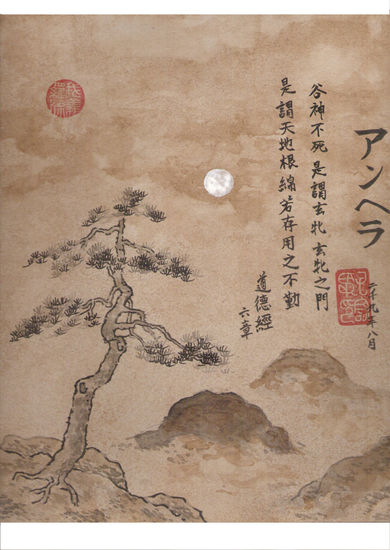 アンヘラ
二千九年八月
谷神不死是謂玄牝玄牝之門
是謂天地根綿若存用之不勤
道德經
六章